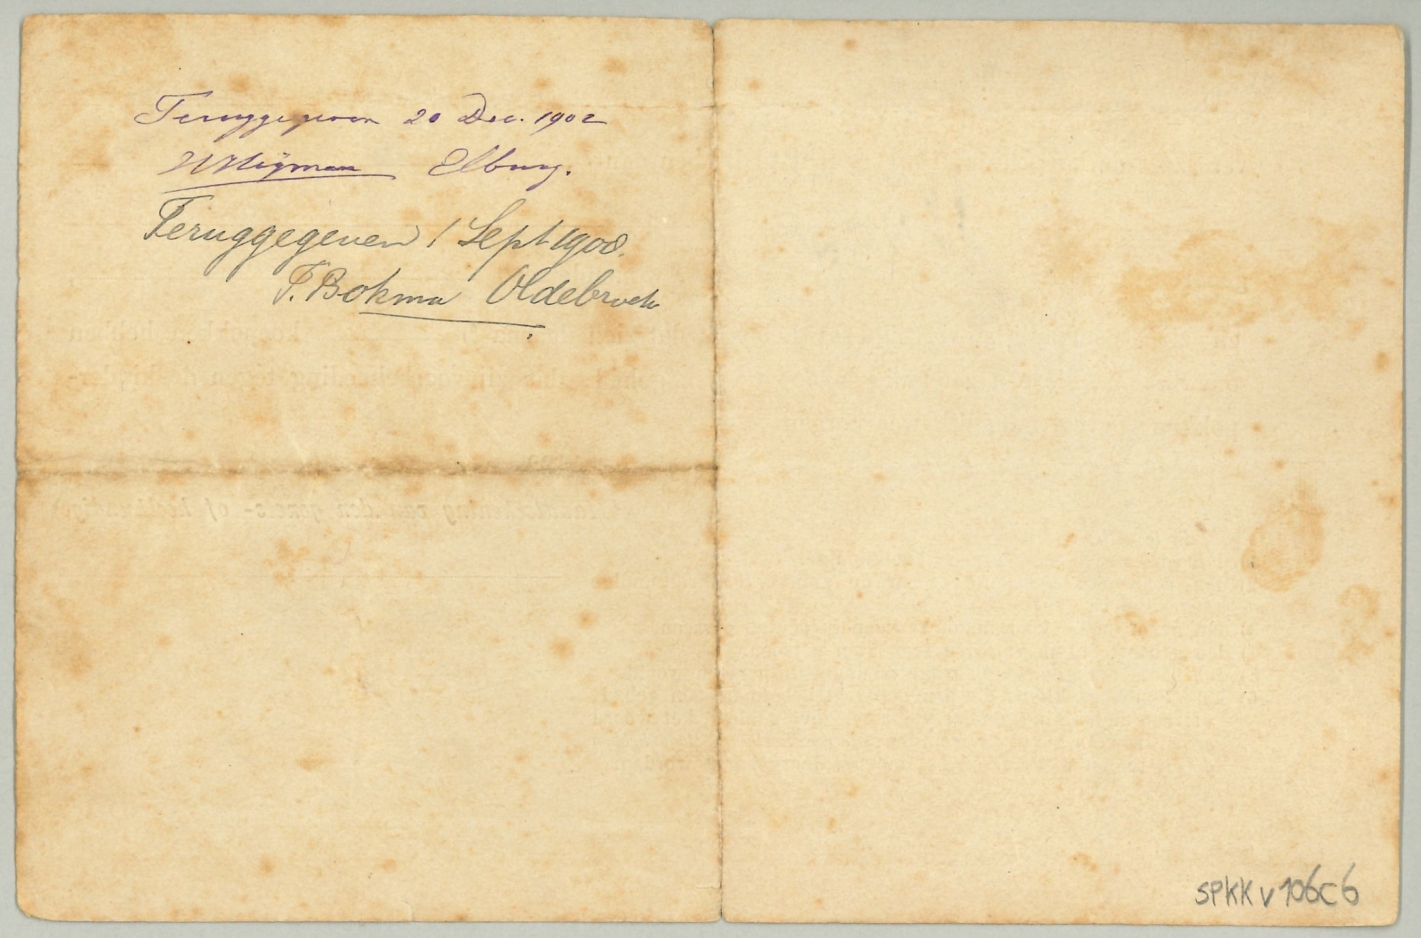 Teruggegeven 20 Dec. 1902
Elburg.
Teruggegeven 1 Sept 1908.
F. Bokma Oldebroek
SPKK V 106C6